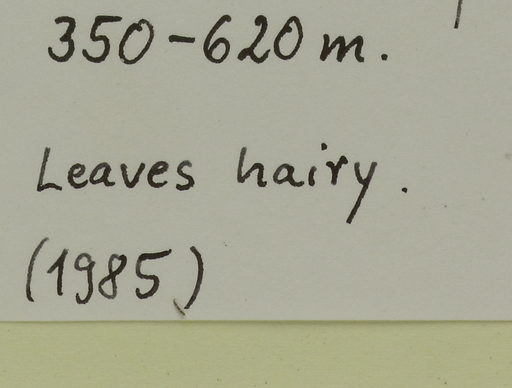 350-620 m.
Leaves hairy.
(1985)